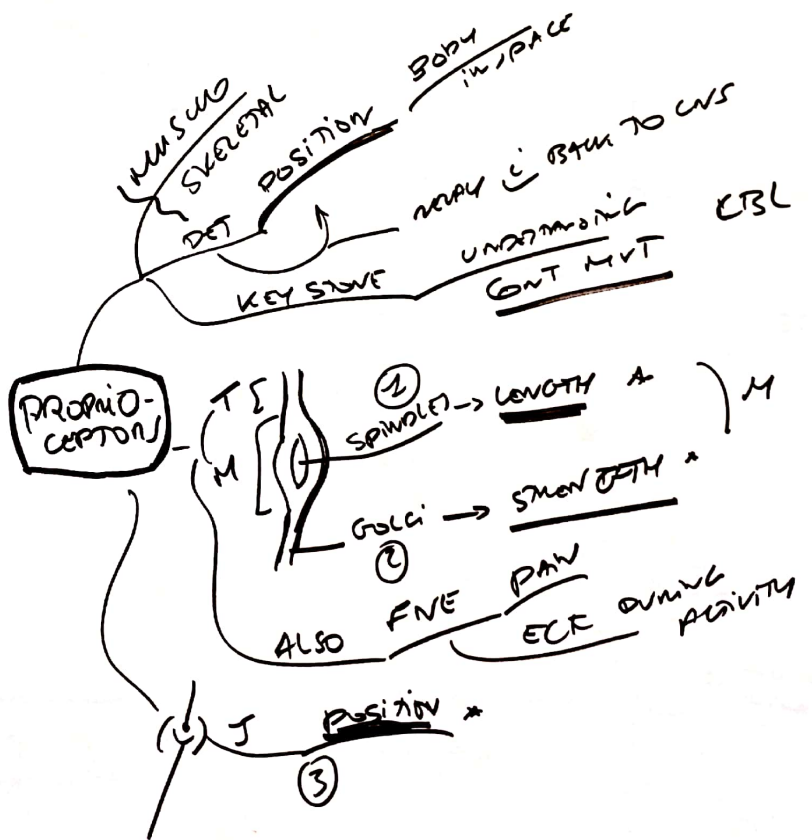 MUSCULO
SKELETAL
DET
POSITION
BODY
IN SPACE
RELAY i BACK TO CNS
KEY STONE
UNDERSTANDING
CONT MVT
CBL
PROPRIO-
CEPTORS
T
M
①
SPINDLES → LENGTH *
M
GOLGI → STRENGTH *
②
ALSO
FNE
PAIN
ECF DURING
ACTIVITY
J
POSITION *
③